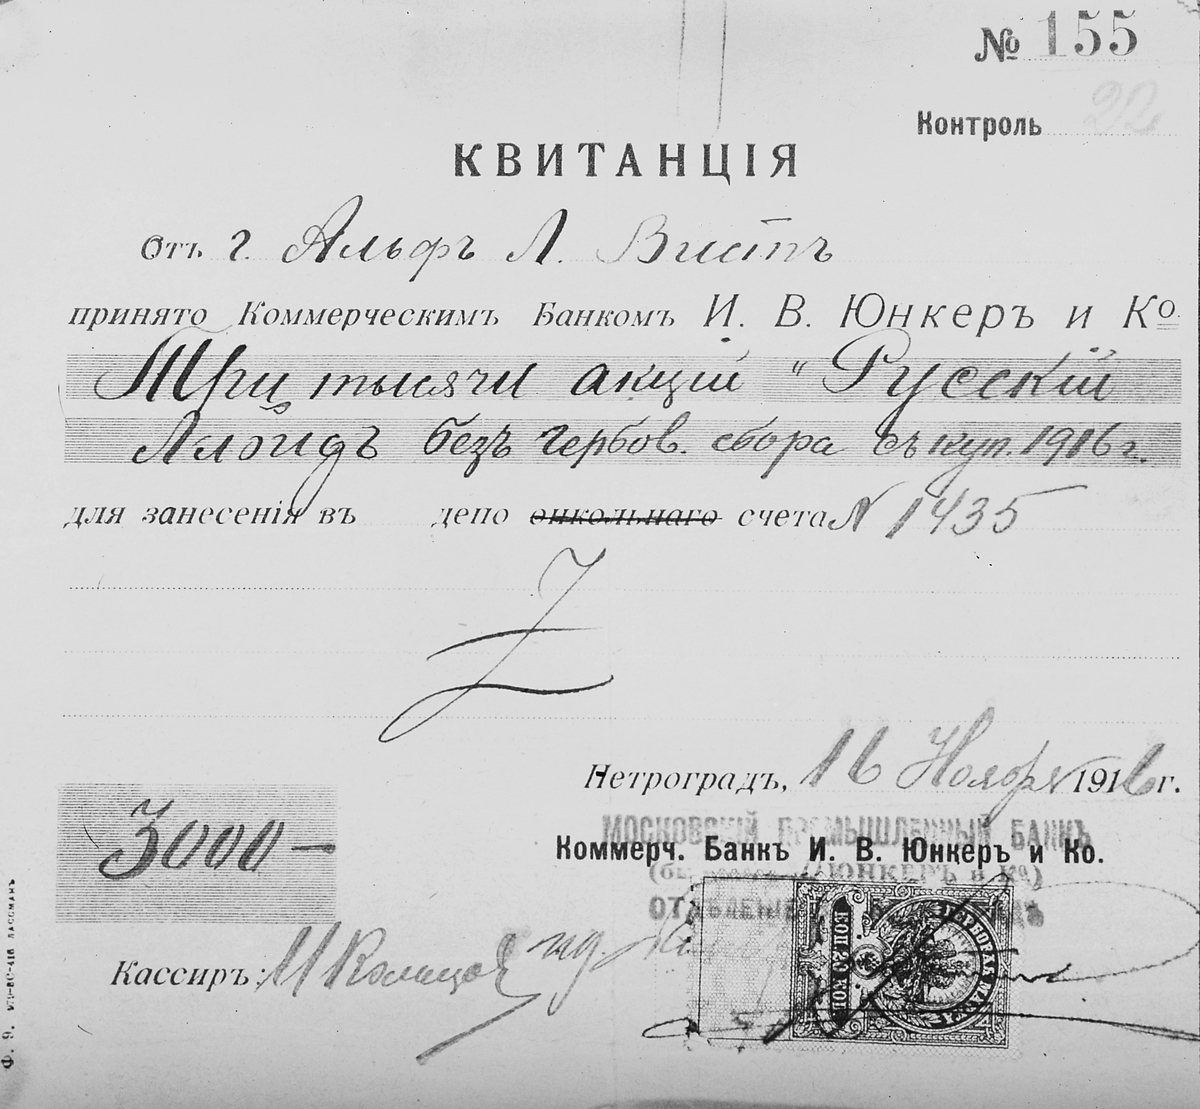 № 155
Контроль 22
КВИТАНЦІЯ
Отъ г. Альфъ Л. Вистъ
принято Коммерческимъ Банкомъ И. В. ЮНКЕРЪ и Ко.
Три тысячи акцій "Русскій
Ллойдъ безъ гербов. сбора съ куп. 1916 г.
для занесенія въ депо онкольнаго счета N 1435
Петроградъ, 16 Ноября 1916 г.
3000 —
МОСКОВСКІЙ ПРОМЫШЛЕННЫЙ БАНКЪ
Коммерч. Банкъ И. В. Юнкеръ и Ко.
ЮНКЕРЪ и Ко)
Кассиръ:
КОП 50 КОП
Ф. 9.